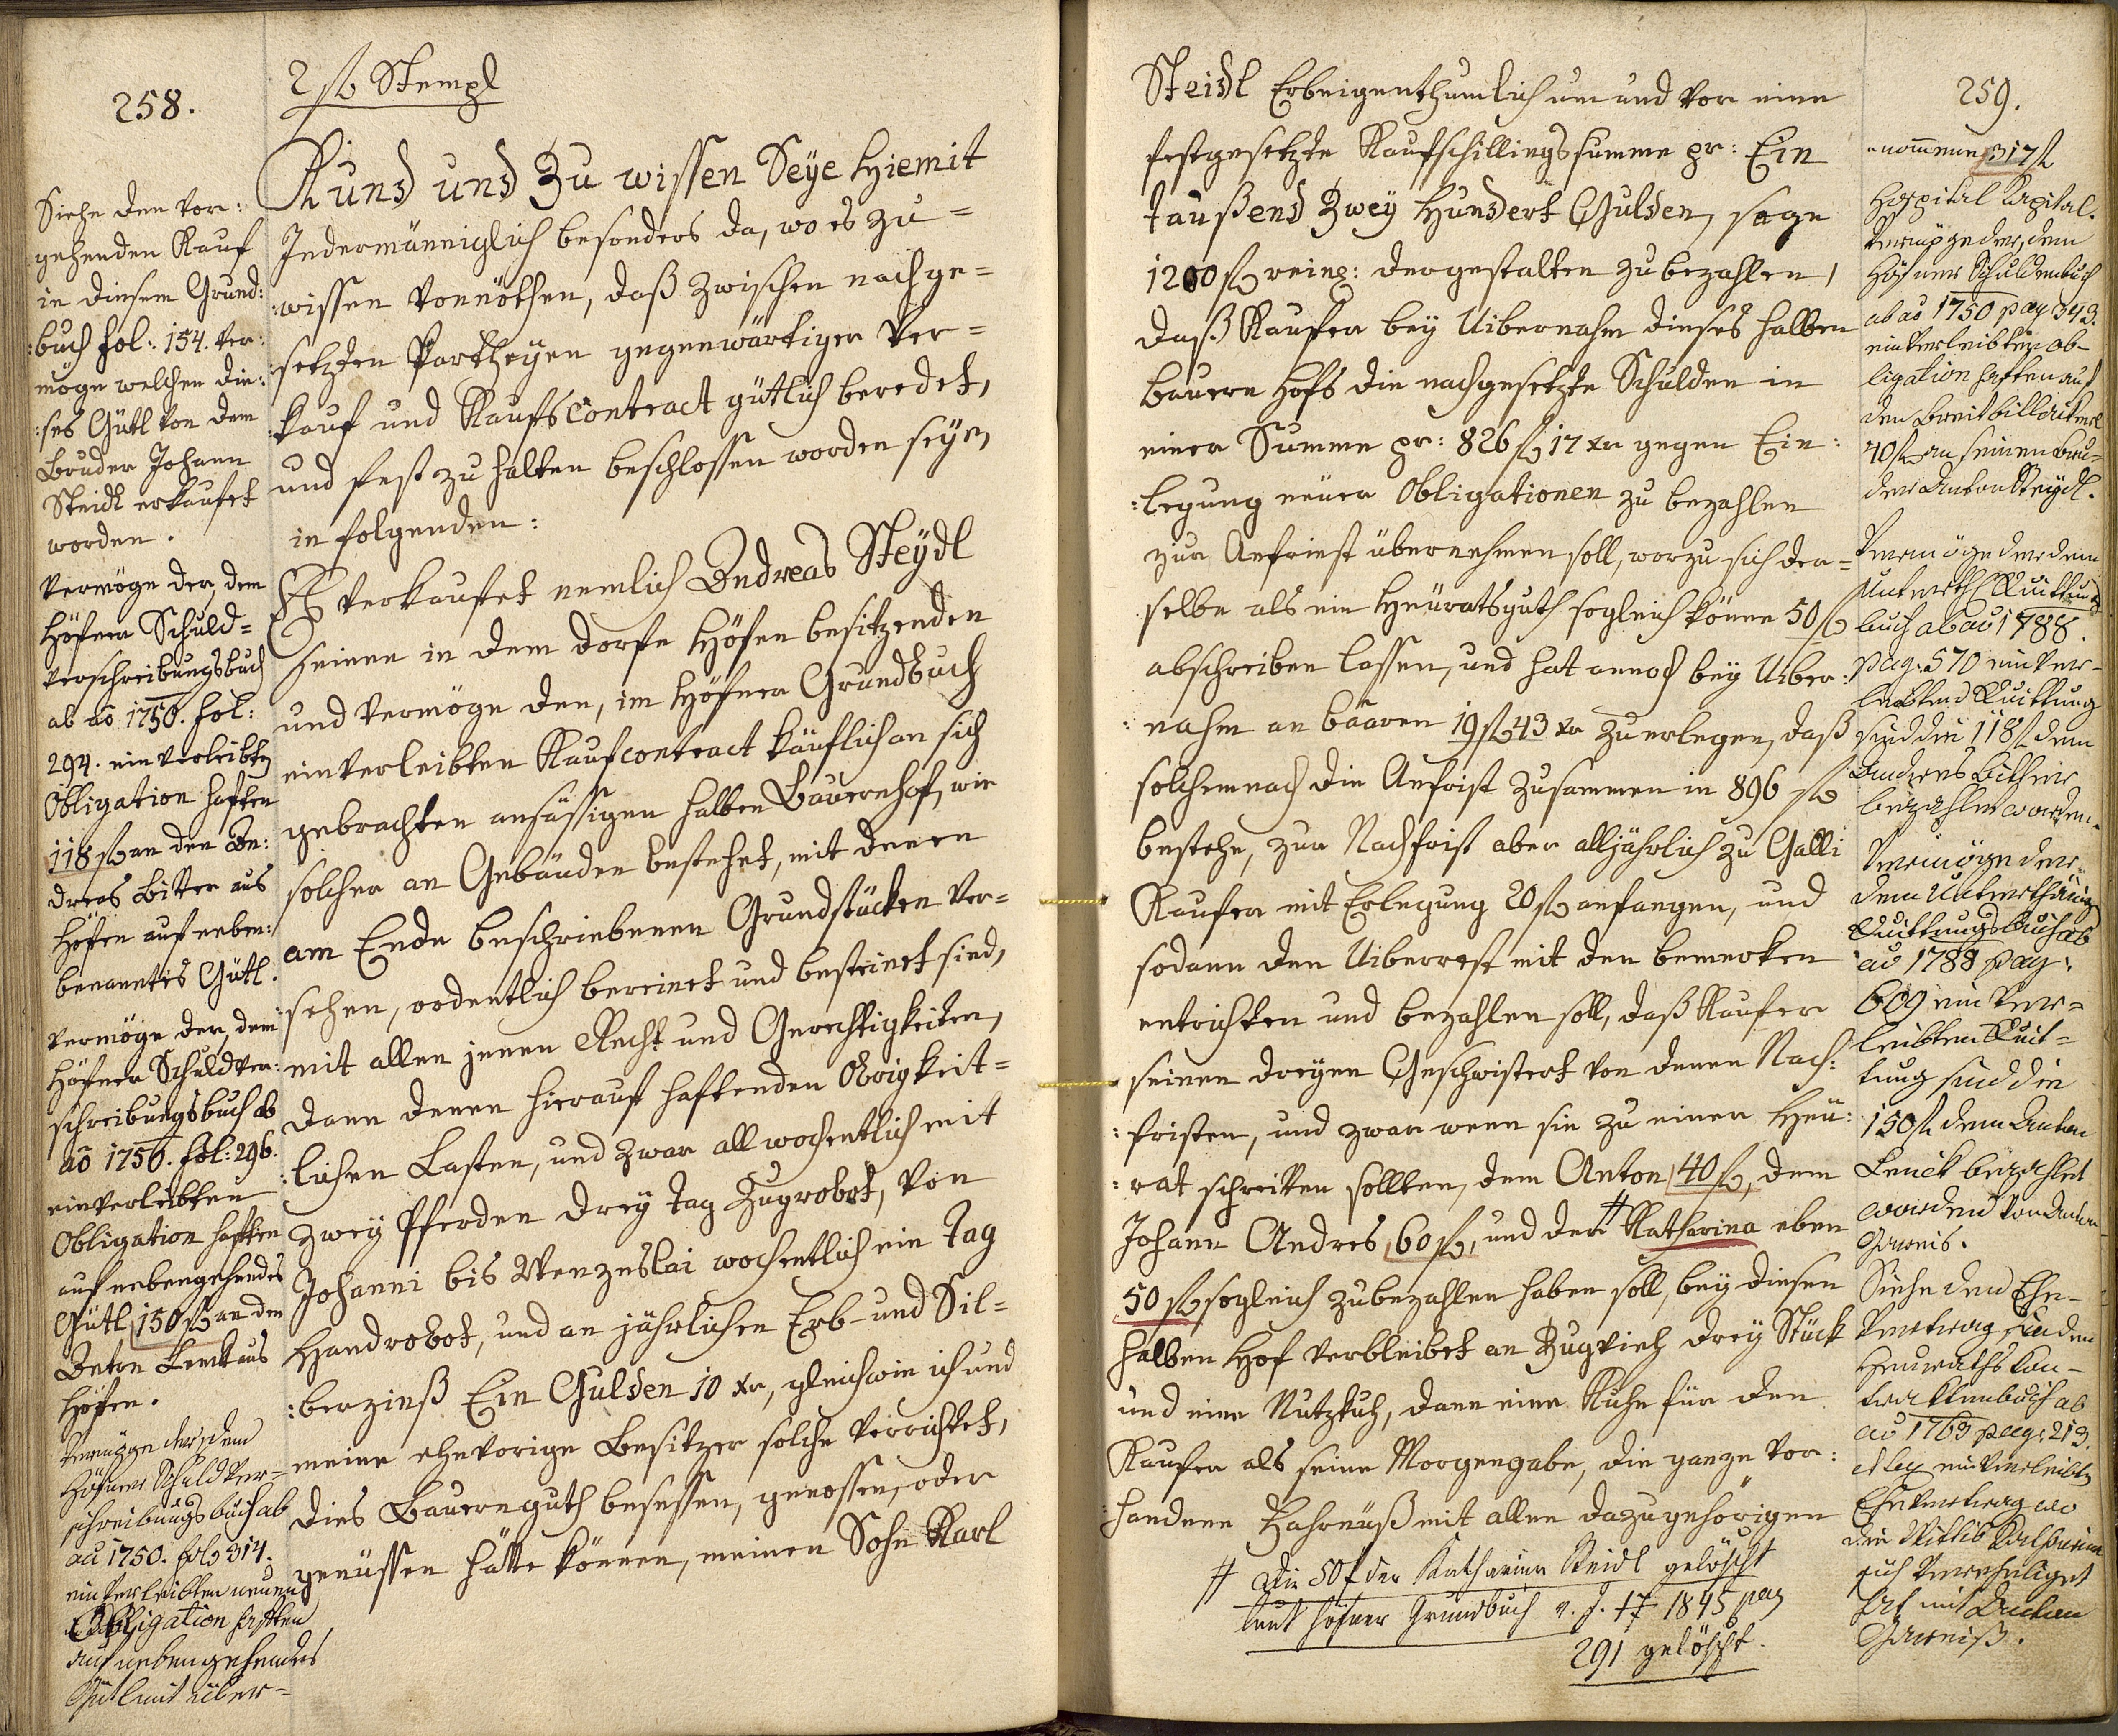 258.
2 fl Stempl
Siehe den vor:
gehenden Kauf
in diesem Grund:
:buch fol: 154. ver:
möge welchen die:
:ses Gütl von dem
Bruder Johann
Steidl erkaufet
worden.
Vermöge der, dem
Höfner Schuld=
Verschreibungsbuch
ab aō 1750. fol:
294. einverleibten
Obligation haften
118 fl an den An:
dreas Bitter aus
Höfen auf neben:
benanntes Gütl.
Vermöge der, dem
Höfner Schuldver:
schreibungsbuch ab
aō 1750. fol: 296.
einverleibten
Obligation haften
auf nebengehendes
Gütl 150 fl an den
Anton Lenck aus
Höfen.
Vermöge der, dem
Höfner Schuldver=
schreibungsbuch ab
aō 1750. fol: 314.
einverleibten neuen
Obligation haften
auf nebengehendes
Gütl mit über=
Kund und Zu wissen Seye Hiemit
Jedermänniglich besonders da, wo es zu=
:wissen vonnöthen, daß zwischen nachge=
:setzten Partheyen gegenwärtiger Ver=
:kauf und Kaufscontract gütlich beredet,
und fest zu halten beschlossen worden seye,
in folgenden:
Es verkaufet nemlich Andreas Steydl
seinen in dem Dorfe Höfen besitzenden
und vermöge den, im Höfner Grundbuch
einverleibten Kaufcontract käuflich an sich
gebrachten ansässigen halben Bauernhof, wie
solcher an Gebäuden bestehet, mit denen
am Ende beschriebenen Grundstücken ver=
:sehen, ordentlich bereinet und besteinet sind,
mit allen jenen Recht und Gerechtigkeiten,
dann denen hierauf haftenden Obrigkeit=
:lichen Lasten, und zwar all wochentlich mit
zwey Pferden drey Tag Zugrobot, von
Johanni bis Wenzeslai wochentlich ein Tag
Handrobot, und an jährlichen Erb- und Sil=
:berzinß Ein Gulden 10 xr, gleichwie ich und
meine ehevorige Besitzer solche verrichtet,
dies Bauernguth besessen, genossen, oder
genüssen hätte können, meinen Sohn Karl
Steidl Erbeigenthumlich um und vor eine
festgesetzte Kaufschillingssumme pr: Ein
Taußend Zwey Hundert Gulden, sage
1200 fl reing: dergestalten zu bezahlen,
daß Kaufer bey Uibernahm dieses halben
Bauern Hofs die nachgesetzte Schulden in
einer Summe pr: 826 fl 17 xr gegen Ein:
:legung neuer Obligationen zu bezahlen
zur Anfriest übernehmen soll, worzu sich der=
selbe als ein Heüratsguth sogleich könne 50 fl
abschreiben lassen, und hat annoch bey Uiber:
:nahm an baaren 19 fl 43 xr zu erlegen, daß
solchemnach die Anfrist zusammen in 896 fl
bestehe, zur Nachfrist aber alljährlich zu Galli
Kaufer mit Erlegung 20 fl anfangen, und
sodann den Uiberrest mit den bemerken
entrichten und bezahlen soll, daß Kaufer
seinen dreyen Geschwistert von denen Nach:
:fristen, und zwar wenn sie zu einer Heü:
:rat schreiten sollten, dem Anton 40 fl, dem
Johann Andres 60 fl, und der # Katharina eben
50 fl sogleich zubezahlen haben soll, bey diesen
halben Hof verbleibet an Zugvieh drey Stück
und eine Nutzkuh, dann eine Kuhe für den
Kaufer als seine Morgengabe, die ganze vor:
:handene Fahrnuß mit allen dazugehörigen
# Die 50 f der Katharina Steidl gelöscht
laut Höfner Grundbuch v. J. 17 1845 pag
291 gelöscht.
259.
=nommene 317 fl
Hospital Kapital.
Vermöge der, dem
Höfner Schuldenbuch
ab aō 1750 pag 343.
einverleibten Ob-
ligation haften auf
den
40 fl an seinen Bru=
der Anton Steydl.
Vermöge der dem
Unterth. Quittungs
buch ab aō 1788.
pag: 570 einver-
leibten Quittung
sind die 118 fl dem
Andreas Bitter
bezahlet worden.
Vermöge der
dem Unterthänig
Quittungsbuch ab
aō 1788 pag:
609 einver=
leibten Quit=
tung sind die
150 fl dem Anton
Lenck bezahlet
worden von Anton
Siehe den Ehe-
Vertrag in dem
Heuraths Kon-
trackten buch ab
aō 1763 pag: 213.
einverleibten
Ehevertrag wo
die Wittib Katharina
sich verehliget
hat mit Anton